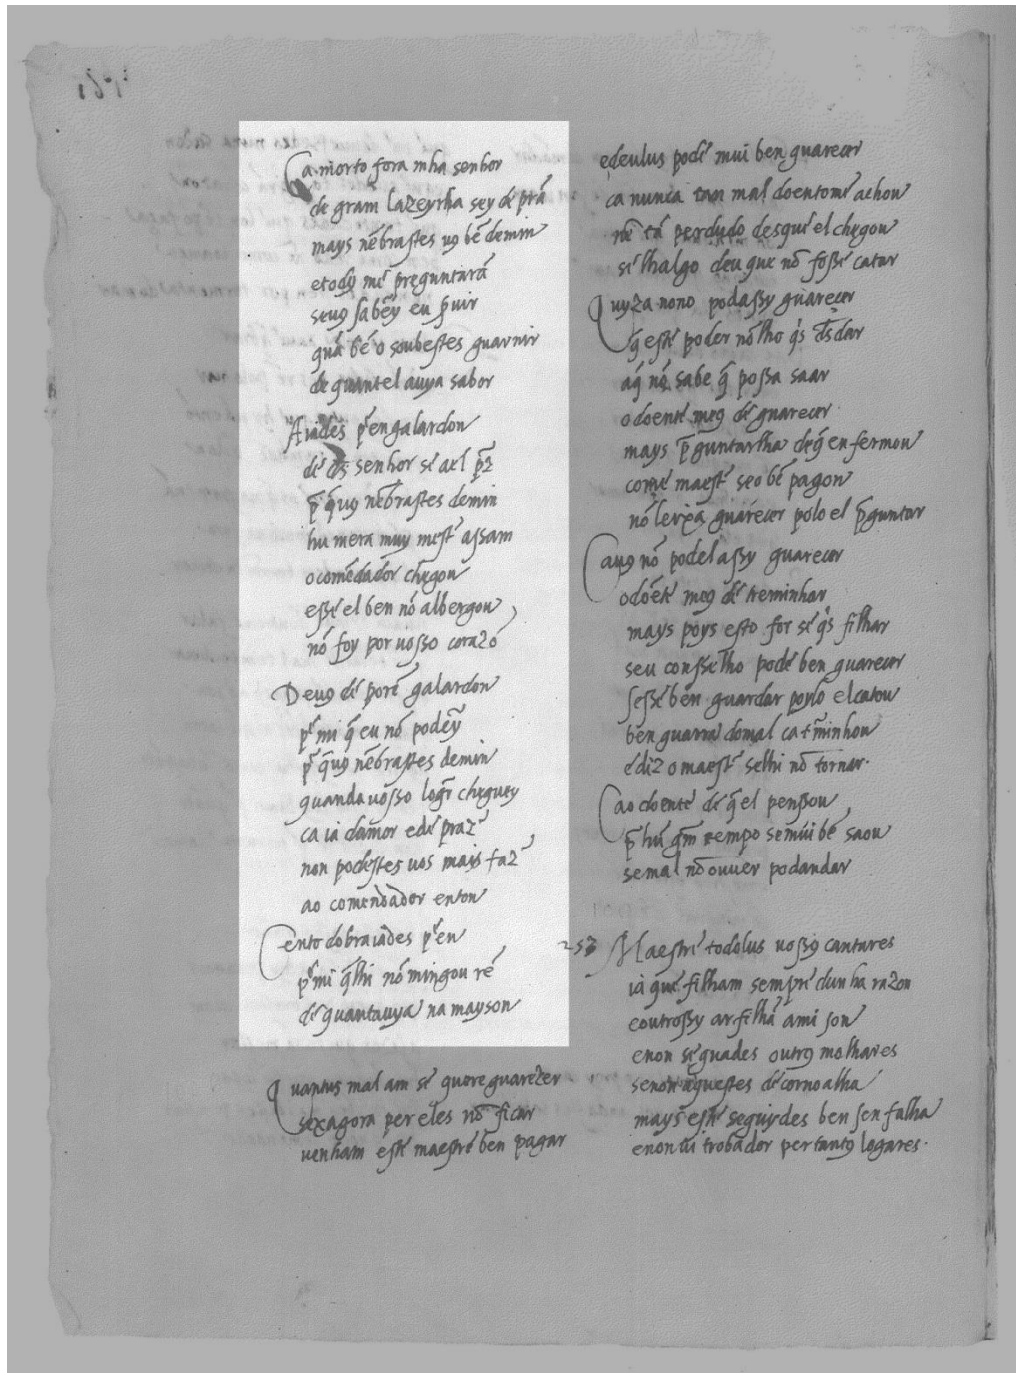 Ca morto fora mha senhor
de gram lazeyrha sey de prã
mays nẽbrastes uꝯ bẽ demin
etodꝯ me preguntarã
seuꝯ sabẽy eu s̃uir
quã bẽ o soubestes guarnir
de quantel auya sabor
Aiades pᵉen galardon
de ds̃ senhor se ael p̃z
p̃ q̃uꝯ nẽbrastes demin
hu mera muy mest̃ assam
ocomẽdador chegou
esse el ben nõ albergou
nõ foy por uosso corazõ
Deuꝯ de porẽ galardon
pᵉ mi q̃ eu nõ podẽy
p̃ q̃uꝯ nẽbrastes demin
quanda uosso logr̃ cheguey
ca ia damor ede praz̃
non podestes uos mays faz̃
ao comendador enton
Cento dobraiades pᵉen
pᵉ mi q̃lhi nõ mingou rẽ
de quantauya na mayson
Quantus mal am se quere guarezer
sexagora per eles nõ ficar
uenham este maestre ben pagar
edeulus pode mui ben guarecer
ca nunca tan mal doentome achou
nẽ tã perdudo desque el chegou
se lhalgo deu que nõ fosse catar
Quyza nono podassy guarecer
q̃ este poder nõ lho qⁱs ds̃ dar
aq̃ nõ sabe q̃ possa saar
odoente meꝯ de guarecer
mays p̃guntarlha de q̃ enfermou
come maest̃ seo bẽ pagou
nõ leyxa guarecer polo el p̃guntar
Cauꝯ nõ podel assy guarecer
odoẽte meꝯ de treminhar
mays poys esto for se qⁱs filhar
seu consselho pode ben guarecer
sesse ben guardar poylo el catou
ben guarra domal ca t̃minhou
ediz o maest̃ selhi nõ tornar.
Cao doente de q̃ el penssou
p̃ hũ gr̃m tempo se mui bẽ saou
se mal nõ ouuer podandar
257 Maestre todolus uossꝯ cantares
ia que filham sempre dunha razon
eoutrossy ar filhã ami son
enon seguades outrꝯ milhares
senon aquestes de cornoalha
mays este seguydes ben sen falha
enon ui trobador per tantꝯ logares.